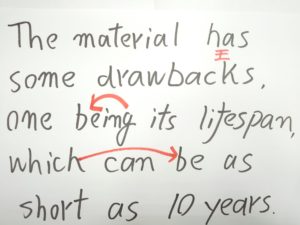 The material has
some drawbacks,
one being its lifespan,
which can be as
short as 10 years.